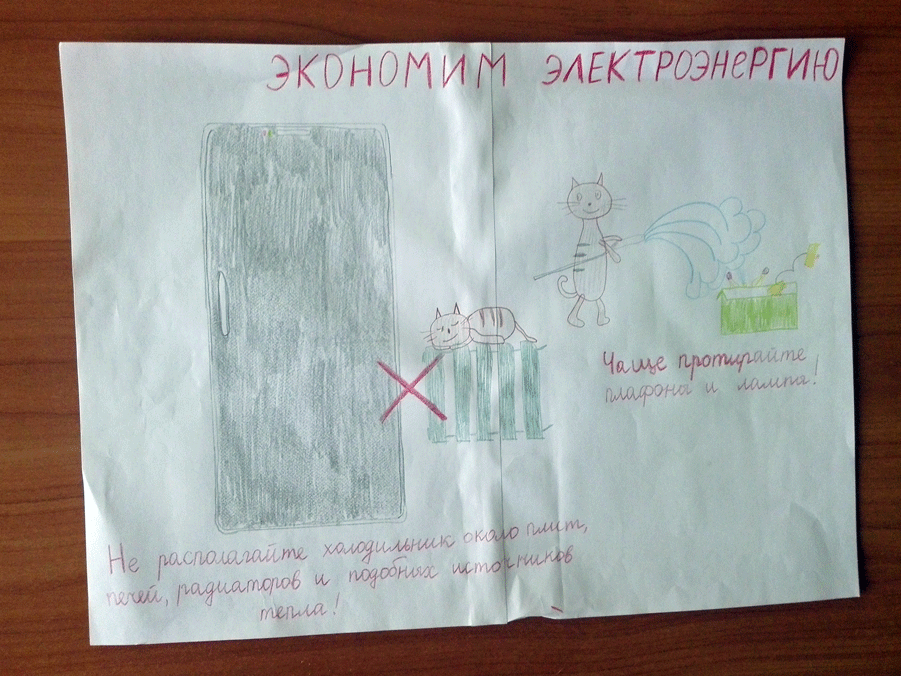 ЭКОНОМИМ ЭЛЕКТРОЭНЕРГИЮ
Чаще протирайте
плафоны и лампы!
Не располагайте холодильник около плит,
печей, радиаторов и подобных источников
тепла!